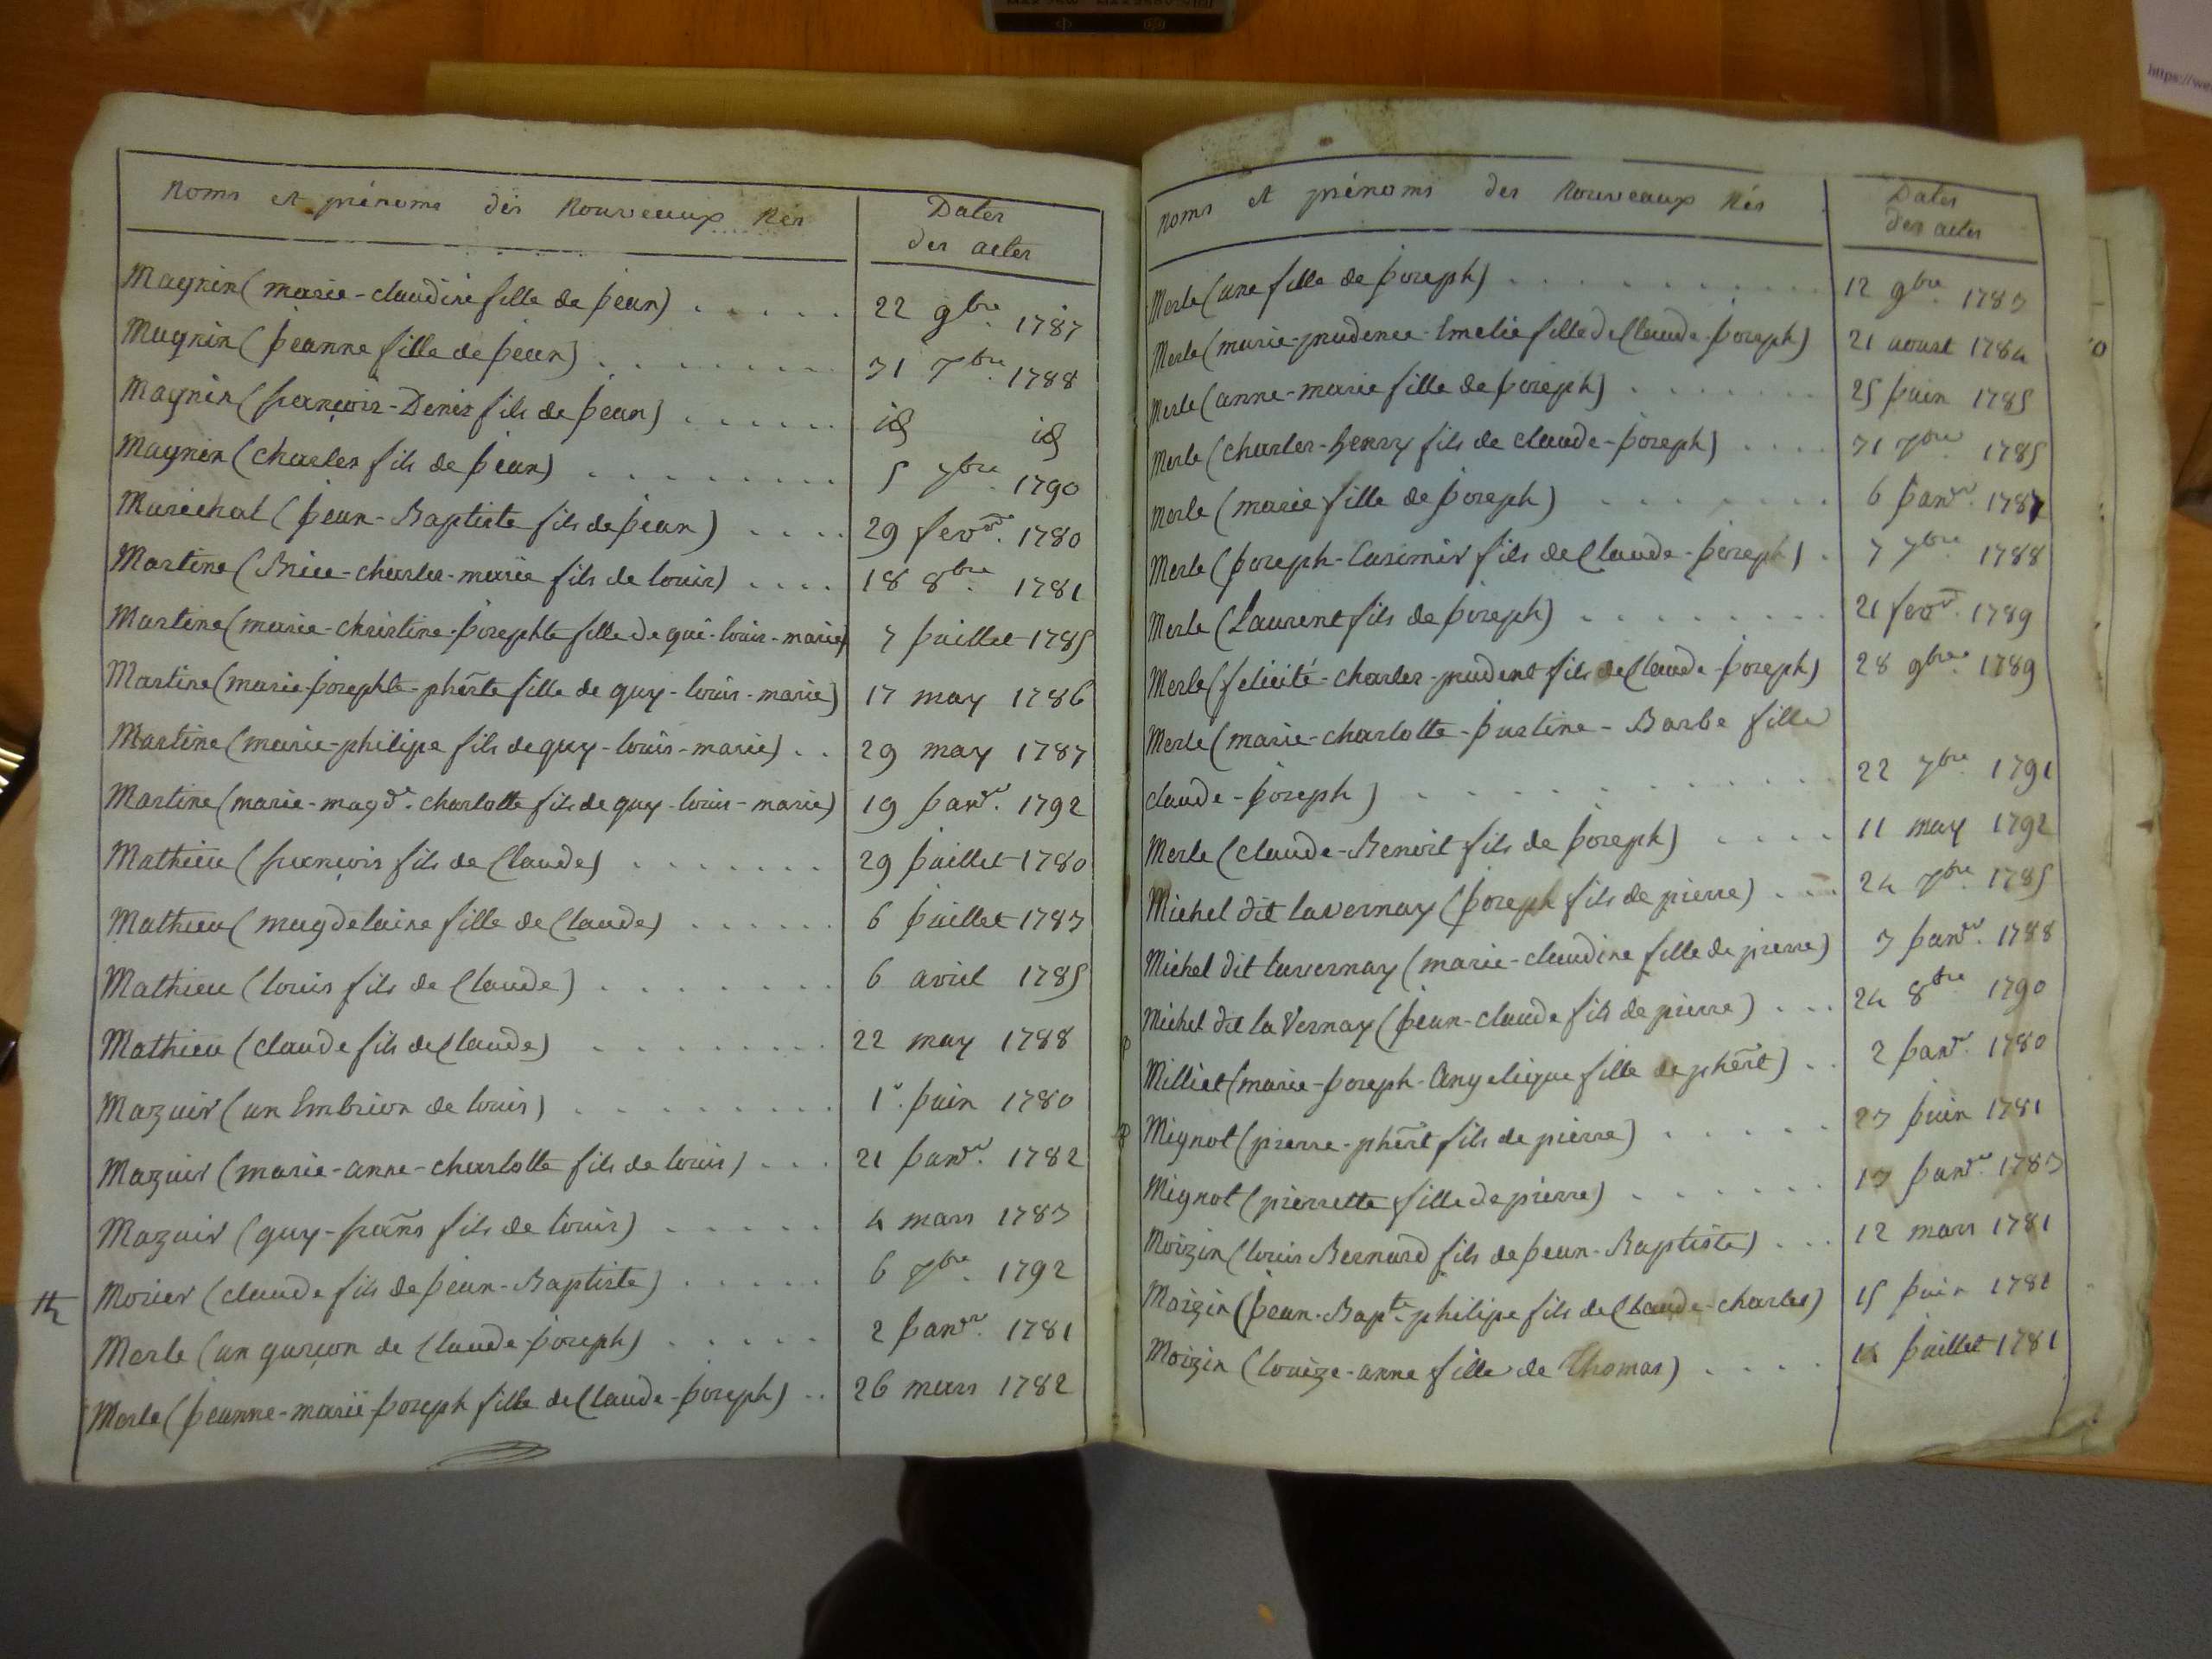 Noms et prénoms des Nouveaux Nés
Dates
des actes
Magnin (marie-claudine fille de jean) . . . . . 22 9bre. 1787
Magnin (jeanne fille de jean) . . . . . . . . 31 7bre. 1788
Magnin (françois-Denis fils de jean) . . . . . . id id
Magnin (charles fils de jean) . . . . . . . . . 5 7bre. 1790
Marechal (jean-Baptiste fils de jean) . . . . 29 fevr. 1780
Martine (Brice-charles-marie fils de louis) . . . . 18 8bre. 1781
Martine (marie-christine-josephte fille de gui-louis-marie) 3 juillet 1785
Martine (marie-josephte-pherte fille de guy-louis-marie) 17 may 1786
Martine (marie-philipe fils de guy-louis-marie) . . 29 may 1787
Martine (marie-magde. charlotte fils de guy-louis-marie) 19 janvr. 1792
Mathieu (françois fils de Claude) . . . . . . . 29 juillet 1780
Mathieu (magdelaine fille de Claude) . . . . . . 6 juillet 1783
Mathieu (louis fils de Claude) . . . . . . . . 6 avril 1785
Mathieu (claude fils de Claude) . . . . . . . . 22 may 1788
Mazuir (un Embrion de louis) . . . . . . . . . 1r. juin 1780
Mazuir (marie-anne-charlotte fils de louis) . . . 21 janvr. 1782
Mazuir (guy-frans fils de louis) . . . . . 4 mars 1783
Morier (claude fils de jean-Baptiste) . . . . . 6 7bre. 1792
Merle (un garçon de Claude-joseph) . . . . . 2 janvr. 1781
Merle (jeanne-marie-joseph fille de Claude-joseph) . . 26 mars 1782
Noms et prénoms des Nouveaux Nés
Dates
des actes
Merle (une fille de joseph) . . . . . . . . . . . 12 9bre. 1783
Merle (marie-prudence-Emelie fille de Claude-joseph) 21 aoust 1784
Merle (anne-marie fille de joseph) . . . . . . . 25 juin 1785
Merle (charles-henry fils de claude-joseph) . . . . 31 7bre. 1785
Merle (marie fille de joseph) . . . . . . . 6 janvr. 1787
Merle (joseph-Casimir fils de Claude-joseph) . 3 7bre. 1788
Merle (Laurent fils de joseph) . . . . . . . . . 21 fevr. 1789
Merle (felicité-charles-prudent fils de Claude-joseph) 28 9bre. 1789
Merle (marie-charlotte-justine-Barbe fille
claude-joseph) . . . . . . . . . . . . . 22 7bre. 1791
Merle (claude-Benoit fils de joseph) . . . . 11 may 1792
Michel dit lavernay (joseph fils de pierre) . . . 24 7bre. 1785
Michel dit lavernay (marie-claudine fille de pierre) 3 janvr. 1788
Michel dit la Vernay (jean-claude fils de pierre) . . . 24 8bre 1790
Milliet (marie-joseph-Angelique fille de phert) . . 2 janvr. 1780
Mignot (pierre-phert fils de pierre) . . . . . 23 juin 1781
Mignot (pierrette fille de pierre) . . . . . . 13 janvr. 1783
Moizin (louis Bernard fils de jean-Baptiste) . . . 12 mars 1781
Moizin (jean-Bapte-philipe fils de Claude-charles) 15 juin 1781
Moizin (louize-anne fille de Thomas) . . . . juillet 1781
https://we